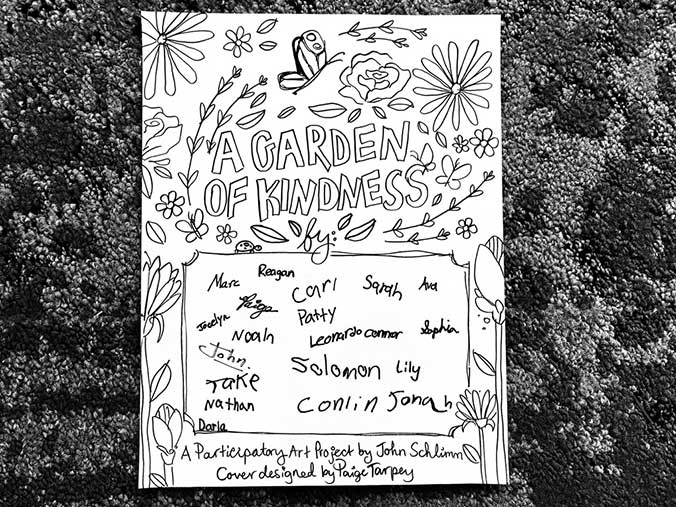 A GARDEN
OF KINDNESS
by:
Marc Reagan Carl Sarah Ava
Jocelyn Paige Patty
Noah Leonardo Connor Sophia
John
Jake Solomon Lily
Nathan Conlin Jonah
Darla
A Participatory Art Project by John Schlimm
Cover designed by Paige Tarpey